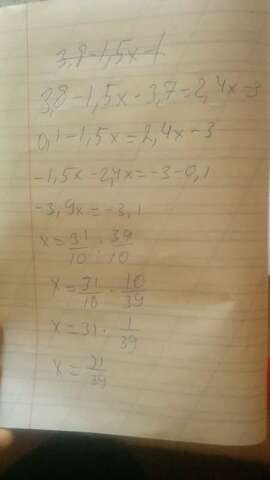 3,8-1,5x-1
3,8-1,5x-3,7=2,4x-3
0,1-1,5x=2,4x-3
-1,5x-2,4x=-3-0,1
-3,9x=-3,1
x=31/10:39/10
x=31/10·10/39
x=31·1/39
x=31/39